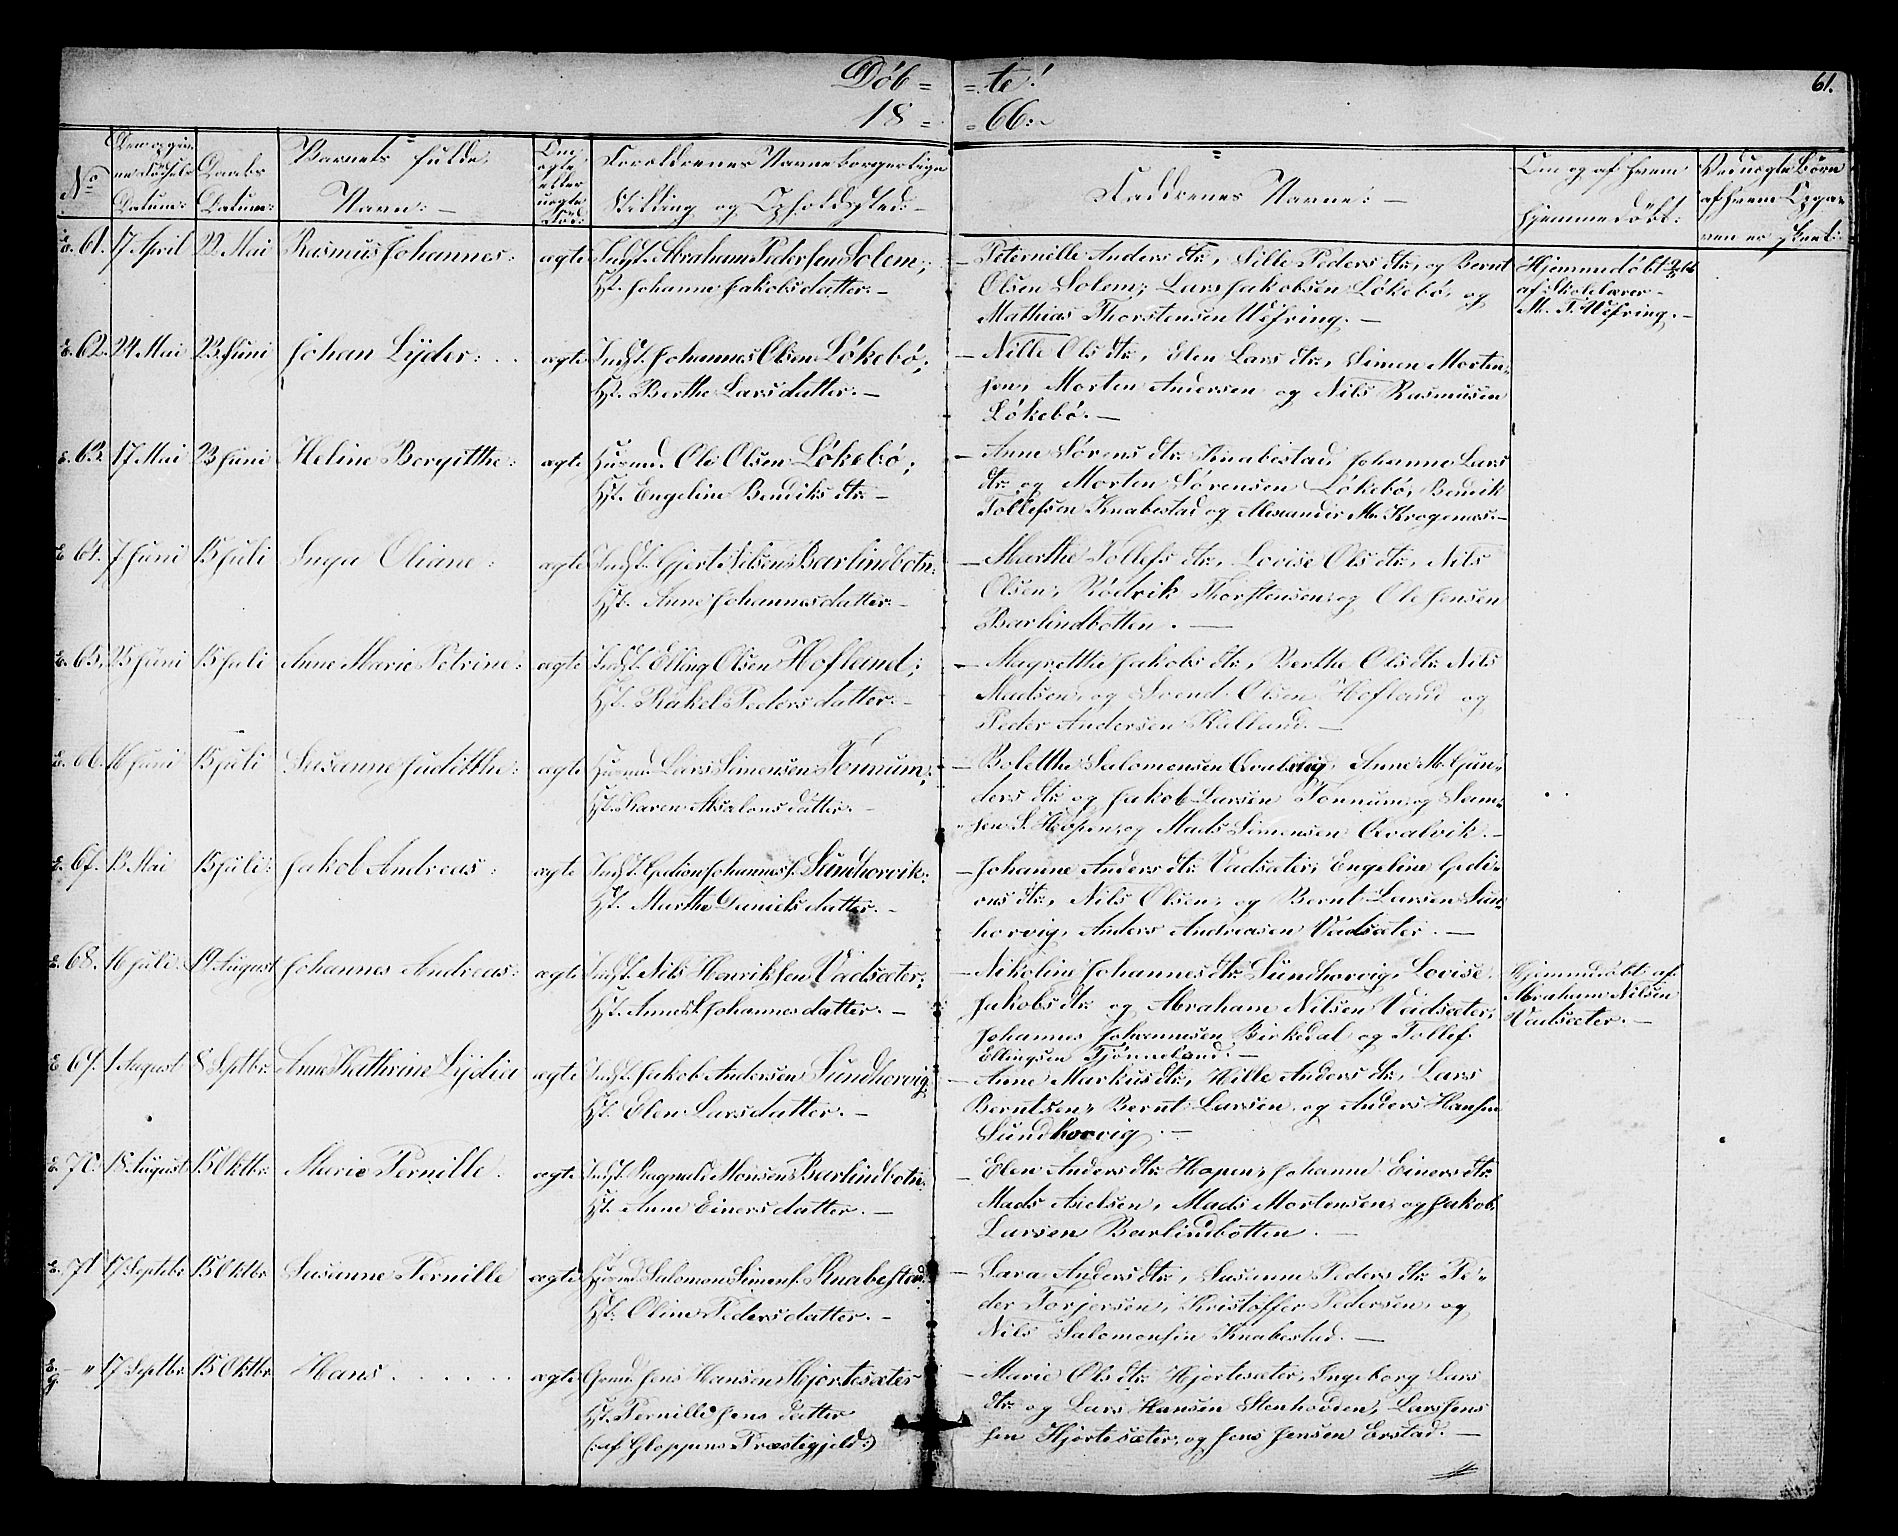 Döb = = te!
61.
18 = = 66:
No
Datum:
Daabs
Datum:
Barnets fulde
Navn: —
Om
ægte
eller
uægte
Föd:
Forældrenes Navne borgerlige
Stilling og Opholdssted: —
Faddrenes Navne: —
Om og af hvem
hjemmedöbt:
Ved uægte Börn
af hvem Opga-
ven er skeet:
E. 61. 17 April 22 Mai Rasmus Johannes: ægte Indst. Abraham Pedersen Solem;
H. Johanne Jakobsdatter. —
— Peternille Anders dtr, Sille Peders dtr, og Bernt
Olsen Solem; Lars Jakobsen Lökebö, og
Mathias Thorstensen Wefring. —
Hjemmedöbt
af Skolelærer
M. T. Wefring. —
E. 62. 24 Mai 23 Juni Johan Lyder: ægte Indst. Johannes Olsen Lökebö;
H. Berthe Larsdatter. —
— Nille Ols dtr, Elen Lars dtr, Simen Morten-
sen, Morten Andersen og Nils Rasmusen
Lökebö. —
E. 63. 17 Mai 23 Juni Heline Bergitthe: ægte Huusmd. Ole Olsen Lökebö;
H. Engeline Bendiks dtr —
— Anne Sörens dtr Knabestad, Johanne Lars
dtr og Morten Sörensen Lökebö, Bendik
Tollefsen Knabestad og Alexander M. Krogenæs. —
E. 64. 7 Juni 15 Juli Inga Oliane: ægte Indst. Gjert Nilsen Barlindbotn:
H. Anne Johannesdatter. —
— Marthe Tollefs dtr, Lovise Ols dtr, Nils
Olsen, Rödrik Thorstensen, og Ole Jensen
Barlindbotten. —
E. 65. 23 Juni 15 Juli Anne Marie Petrine: ægte Indst. Elling Olsen Hofland;
H. Rakel Pedersdatter. —
— Magretthe Jakobs dtr, Berthe Ols dtr Nils
Madsen, og Svend Olsen Hofland og
Peder Andersen Kalland. —
E. 66. 16 Juni 15 Juli Susanne Juditthe: ægte Huusmd. Lars Simensen Tonnum;
H. Karen Absalons datter. —
— Bolethe Salomonsen Qvalvig, Anne M. Gun-
ders dtr og Jakob Larsen Tonnum, og Sam-
sen S. Hopen, og Mads Simensen Qvalvik. —
E. 67. 13 Mai 15 Juli: Jakob Andreas: ægte Indst. Gedion Johannes. Sundhorvik:
H. Marthe Daniels datter. —
— Johanne Anders dtr Vadsæter, Engeline Gedi-
ons dtr, Nils Olsen, og Bernt Larsen Sun-
horvig, Anders Andreasen Vadsæter. —
E. 68. 16 Juli 19 August Johannes Andreas: ægte Indst. Nils Henriksen Vadsæter;
H. Anne Johannesdatter. —
— Nikoline Johannes dtr Sundhorvig, Lovise
Jakobs dtr og Abraham Nilsen Vadsæter,
Johannes Johannesen Birkedal og Tollef
Ellingsen Tjönneland. —
Hjemmedöbt af
Abraham Nilsen
Vadsæter. —
E. 69. 1 August 8 Septbr. Anne Kathrine Lydia ægte Indst. Jakob Andersen Sundhorvig
H. Elen Larsdatter. —
— Anne Markus dtr, Hille Anders dtr, Lars
Berntsen, Bernt Larsen, og Anders Hansen
Sundhorvig. —
E. 70. 18 August 15 Oktbr. Marie Pernille. ægte Indst. Ragnald Monsen Barlindbotn:
H. Anne Einersdatter. —
— Elen Anders dtr Hopen, Johanne Einers dtr
Mads Axelsen, Mads Mortensen, og Jakob
Larsen Barlindbotten. —
E. 71 17 Septbr. 15 Oktbr. Susanne Pernille ægte Huusmd Salomon Simens. Knabestad
H. Oline Pedersdatter. —
— Sara Anders dtr, Susanne Peders dtr Pe-
der Torjersen, Kristoffer Pedersen, og
Nils Salomonsen Knabestad. —
E. g. — " 17 Septbr. 15 Oktbr. Hans . . . . . . ægte Grmd Jens Hansen Hjortesæter
H. Pernille Jens datter
(: af Gloppens Præstegjeld:)
— Marie Ols dtr Hjortesæter, Ingeborg Lars
dtr og Lars Hansen Stenhovden, Lars Jens
sen Hjortesæter, og Jens Jensen Erstad. —